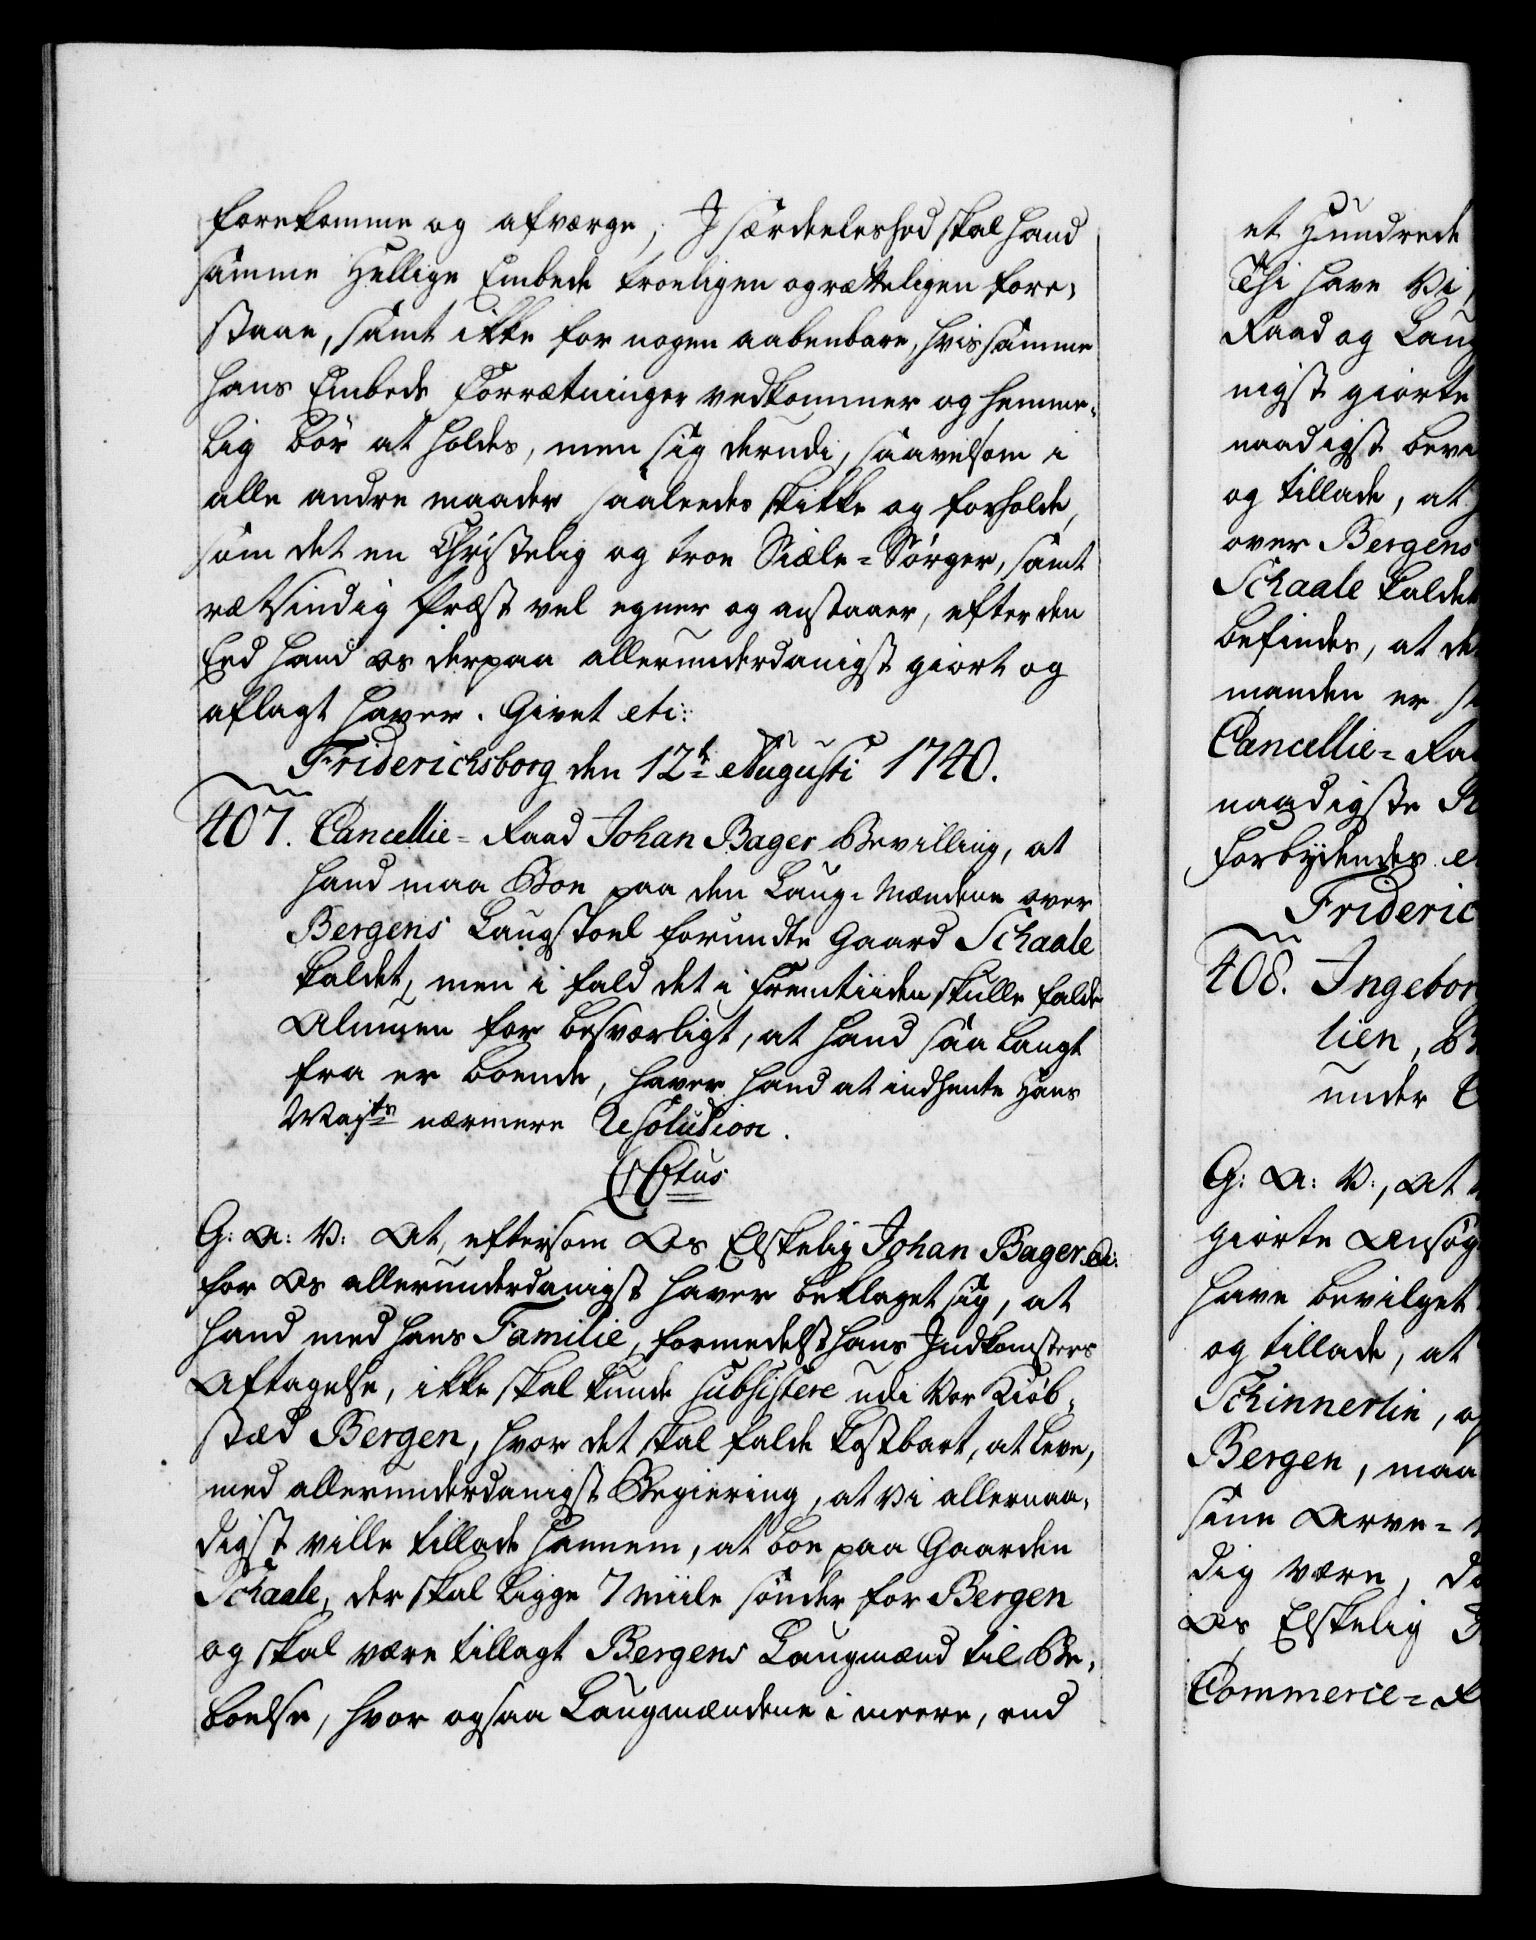 forekomme og afværge, I særdeeleshed skal hand
samme Hellige Embede troeligen og rætteligen fore-
staae, samt ikke for nogen aabenbare, hvis samme
hans Embeds Forrætninger vedkommer og hemme-
lig bör at holdes, men sig derudi, saavelsom i
alle andre maader saaleedes skikke og forholde,
som det en Christelig og troe Siæle-Sörger, samt
rætsindig Præst vel egner og anstaaer, efter den
Eed hand os derpaa allerunderdanigst giort og
aflagt haver. Givet etc:
Friderichsborg den 12te Augusti 1740.
407. Cancellie-Raad Johan Bager Bevilling, at
hand maa Boe paa den Laug-Mændene over
Bergens Laugstoel forundte Gaard Schaale
kaldet, men i fald det i Fremtiiden skulle falde
Almuen for besværligt, at hand saa langt
fra er boende, haver hand at indhente Hans
Majts nærmere Resolution.
C6tus
G: A: V: At, eftersom Os Elskelig Johan Bager etc:
for Os allerunderdanigst haver beklaget sig, at
hand med hans Familie, formedelst hans Indkomsters
Aftagelse, ikke skal kunde subsistere udi Vor Kiöb-
stæd Bergen, hvor det skal falde kostbart, at leve,
med allerunderdanigst Begiering, at Vi allernaa-
digst ville tillade hannem, at boe paa Gaarden
Schaale, der skal ligge 7 Miile sönder for Bergen
og skal være tillagt Bergens Laugmænd til Be-
boelse, hvor ogsaa Laugmændene i meere, end
et Hundrede
Thi have Vi,
Raad og Laug
nigst giorte
naadigst bevi
og tillade, at
over Bergens
Schaale kaldet
befindes, at de
manden er
Cancellie-Raa
naadigste
Forbydendes
Frideric
408. Ingebor
lien,
under
G: A: V:, At
giorte Ansög
have bevilget
og tillade, at
Schinnerlin,
Bergen, maa
sine Arve-
dig være,
Os Elskelig
Commerce-R